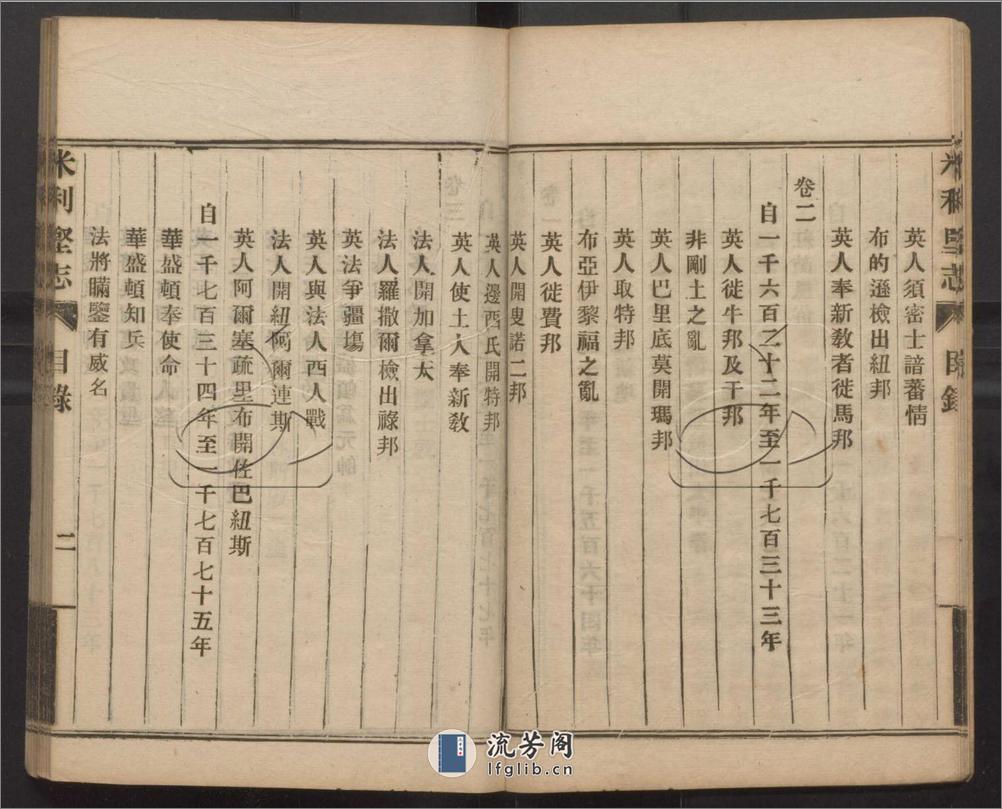 英人須密士諳蕃情
布的遜檢出紐邦
英人奉新敎者徙馬邦
卷二
自一千六百二十二年至一千七百三十三年
英人徙牛邦及干邦
非剛土之亂
英人巴里底莫開瑪邦
英人取特邦
布亞伊黎福之亂
英人徙費邦
英人開叟諾二邦
英人邊西氏開特邦
英人使土人奉新敎
法人開加拿大
法人羅撒爾檢出祿邦
英法爭疆場
英人與法人西人戰
法人開紐阿爾連斯
英人阿爾塞疏里布開佐巴紐斯
自一千七百三十四年至一千七百七十五年
華盛頓奉使命
華盛頓知兵
法將瞞鑒有威名
米利堅志
目錄
二
米利堅志
目錄
流芳阁
lfglib.cn